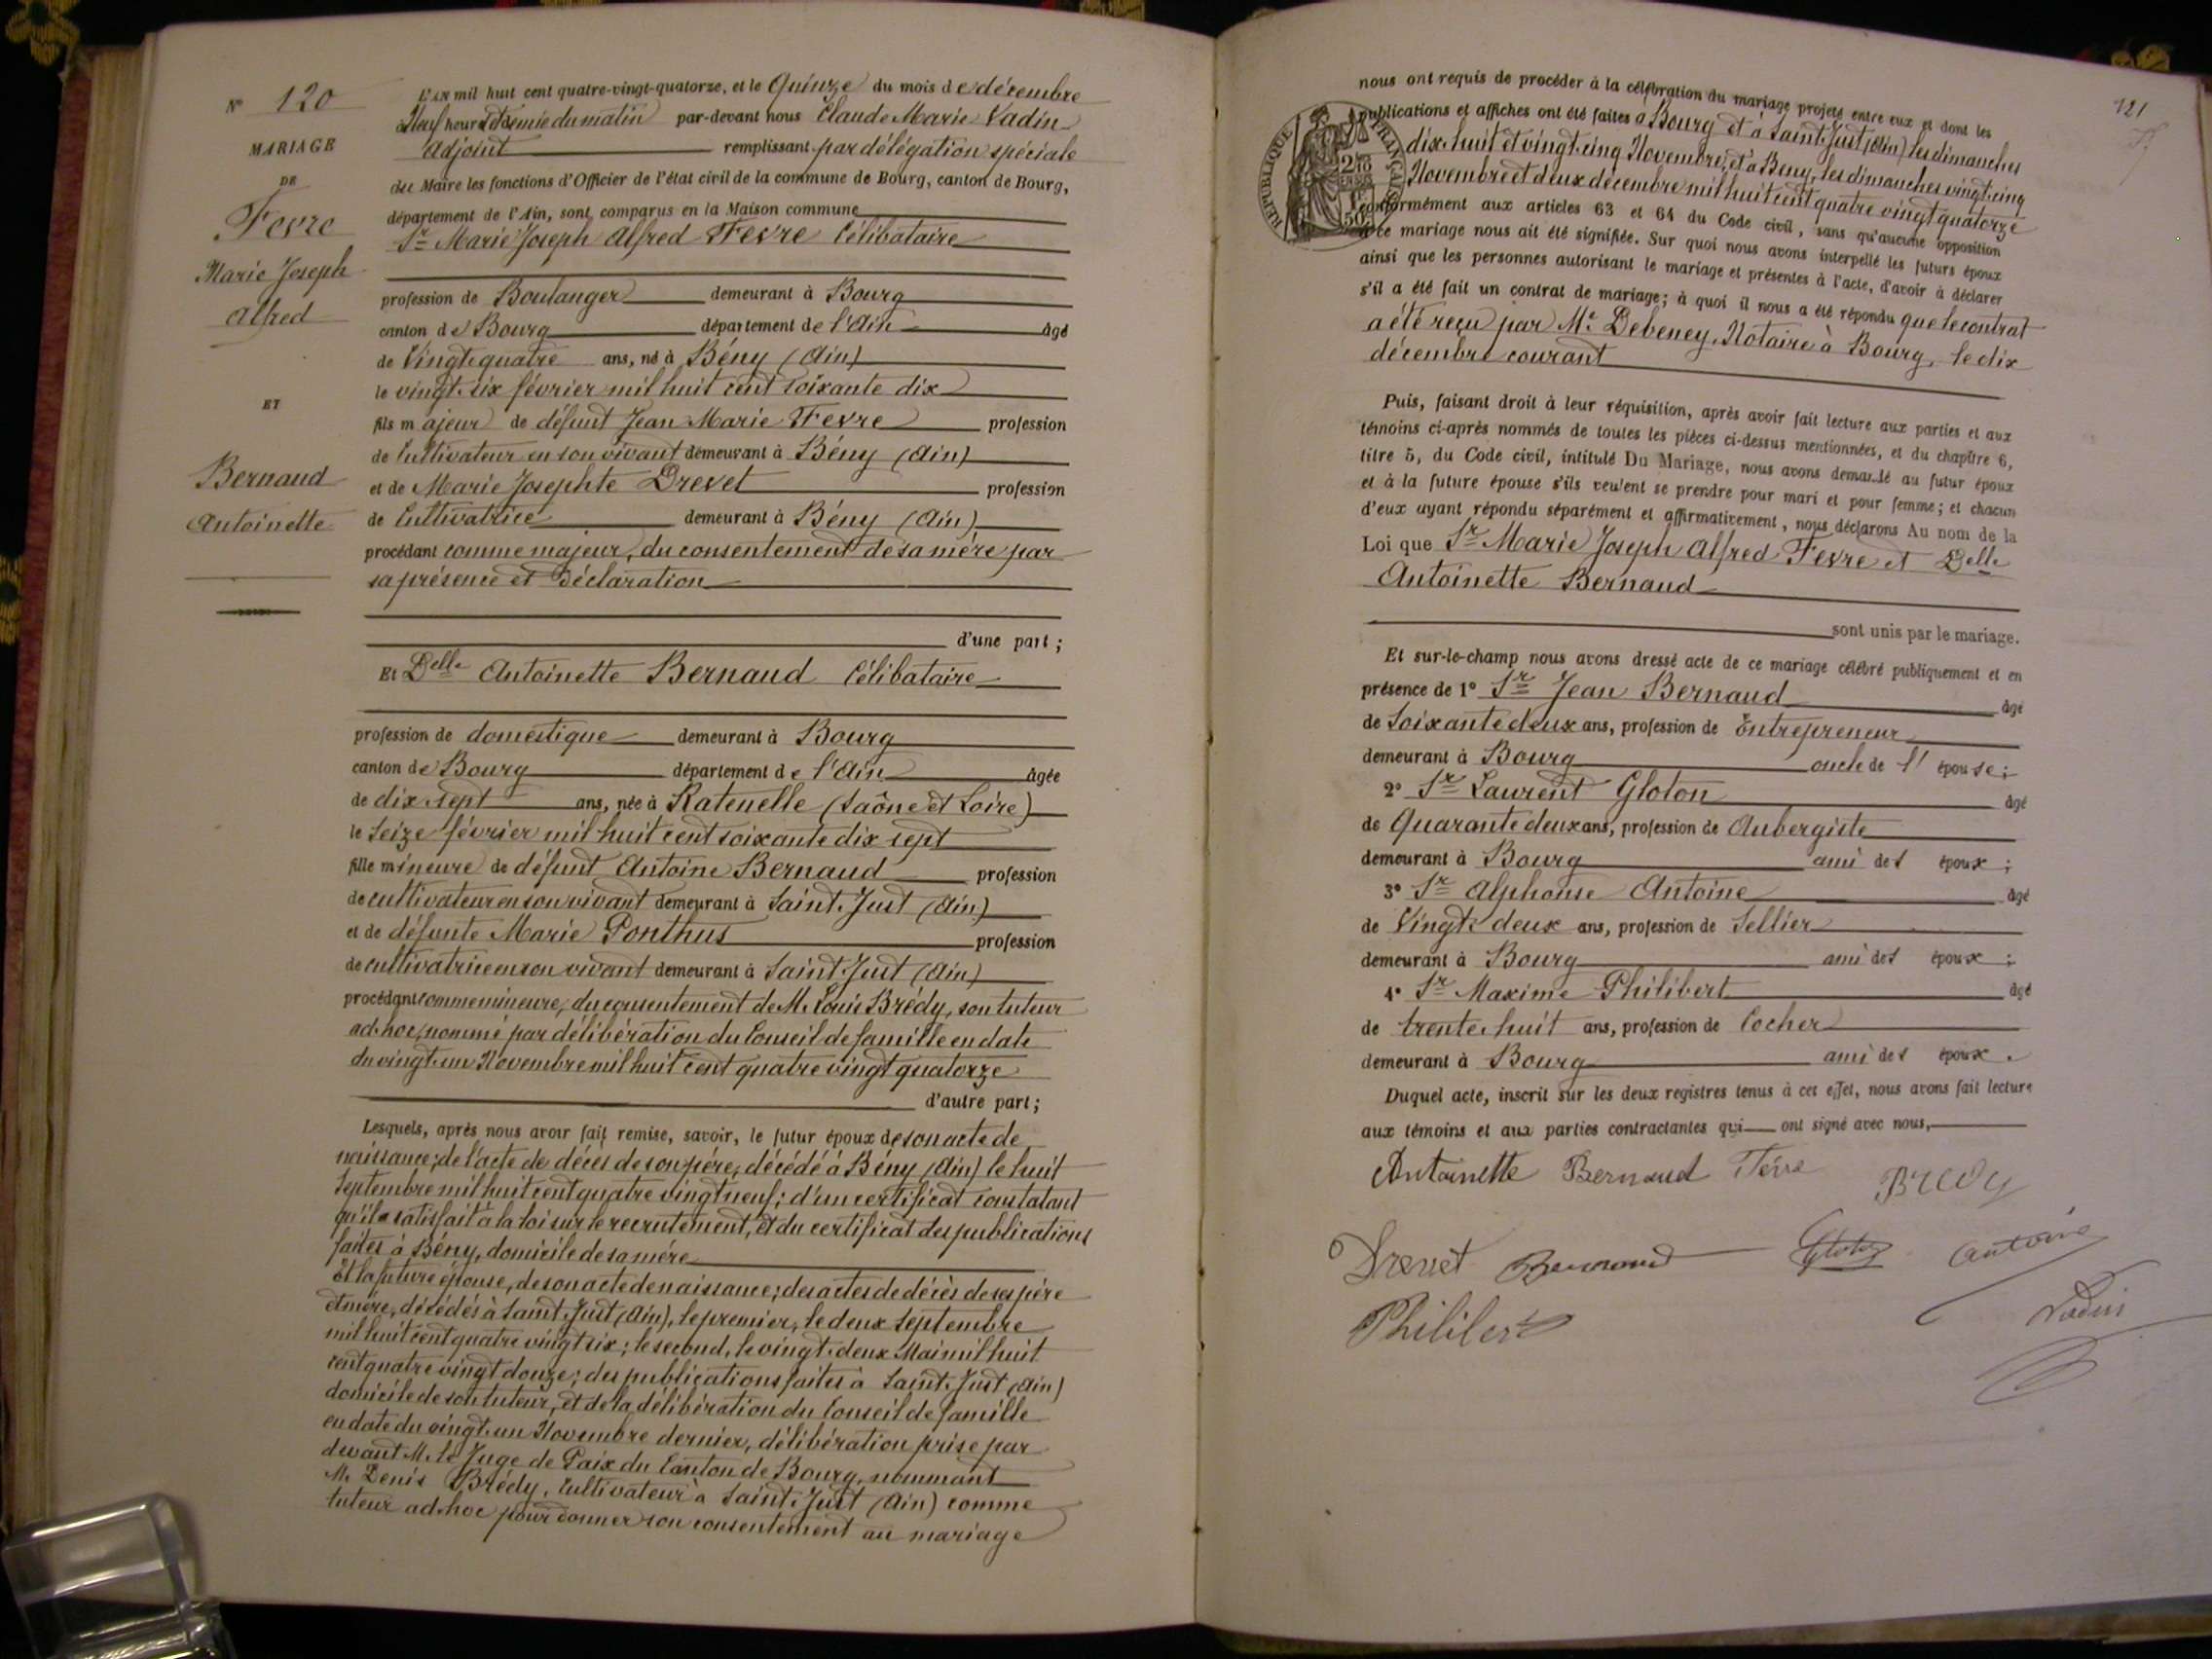 N° 120
MARIAGE
DE
Fevre
Marie Joseph
Alfred
ET
Bernaud
Antoinette
L'AN mil huit cent quatre-vingt-quatorze, et le Quinze du mois de décembre
à Neuf heures et demie du matin par-devant nous Claude Marie Vadin
Adjoint remplissant par délégation spéciale
du Maire les fonctions d'Officier de l'état civil de la commune de Bourg, canton de Bourg,
département de l'Ain, sont comparus en la Maison commune
Sr Marie Joseph Alfred Fevre Célibataire
profession de Boulanger demeurant à Bourg
canton de Bourg département de l'Ain âgé
de Vingt quatre ans, né à Bény (Ain)
le vingt-six février mil huit cent soixante dix
fils majeur de défunt Jean Marie Fevre profession
de Cultivateur en son vivant demeurant à Bény (Ain)
et de Marie Josephte Drevet profession
de Cultivatrice demeurant à Bény (Ain)
procédant comme majeur, du consentement de sa mère par
sa présence et déclaration
d'une part ;
Et Delle Antoinette Bernaud Célibataire
profession de domestique demeurant à Bourg
canton de Bourg département de l'Ain âgée
de dix sept ans, née à Ratenelle (Saône et Loire)
le Seize février mil huit cent soixante dix sept
fille mineure de défunt Antoine Bernaud profession
de cultivateur en son vivant demeurant à Saint-Just (Ain)
et de défunte Marie Ponthus profession
de cultivatrice en son vivant demeurant à Saint-Just (Ain)
procédant comme mineure, du consentement de M. Louis Brédy, son tuteur
ad-hoc, nommé par délibération du Conseil de famille en date
du vingt-un Novembre mil huit cent quatre vingt quatorze
d'autre part ;
Lesquels, après nous avoir fait remise, savoir, le futur époux de son acte de
naissance ; de l'acte de décès de son père, décédé à Bény (Ain) le huit
Septembre mil huit cent quatre vingt neuf ; d'un certificat constatant
qu'il a satisfait à la loi sur le recrutement, et du certificat des publications
faites à Bény, domicile de sa mère
Et la future épouse, de son acte de naissance ; des actes de décès de ses père
et mère, décédés à Saint-Just (Ain), le premier, le deux Septembre
mil huit cent quatre vingt six ; le second, le vingt-deux Mai mil huit
cent quatre vingt douze ; des publications faites à Saint-Just (Ain)
domicile de son tuteur, et de la délibération du Conseil de famille
en date du vingt-un Novembre dernier, délibération prise par
devant M. le Juge de Paix du Canton de Bourg, nommant
M. Denis Brédy, Cultivateur à Saint-Just (Ain) comme
tuteur ad-hoc pour donner son consentement au mariage
121
nous ont requis de procéder à la célébration du mariage projeté entre eux et dont les
publications et affiches ont été faites à Bourg et à Saint-Just (Ain) les dimanches
dix-huit et vingt-cinq Novembre, et à Beny, les dimanches vingt-cinq
Novembre et deux décembre mil huit cent quatre vingt quatorze
conformément aux articles 63 et 64 du Code civil, sans qu'aucune opposition
à ce mariage nous ait été signifiée. Sur quoi nous avons interpellé les futurs époux
ainsi que les personnes autorisant le mariage et présentes à l'acte, d'avoir à déclarer
s'il a été fait un contrat de mariage ; à quoi il nous a été répondu que le contrat
a été reçu par Me Debeney, Notaire à Bourg, le dix
décembre courant
RÉPUBLIQUE FRANÇAISE
Puis, faisant droit à leur réquisition, après avoir fait lecture aux parties et aux
témoins ci-après nommés de toutes les pièces ci-dessus mentionnées, et du chapitre 6,
titre 5, du Code civil, intitulé Du Mariage, nous avons demandé au futur époux
et à la future épouse s'ils veulent se prendre pour mari et pour femme ; et chacun
d'eux ayant répondu séparément et affirmativement, nous déclarons Au nom de la
Loi que Sr Marie Joseph Alfred Fevre et Delle
Antoinette Bernaud
sont unis par le mariage.
Et sur-le-champ nous avons dressé acte de ce mariage célébré publiquement et en
présence de 1° Sr Jean Bernaud âgé
de Soixante deux ans, profession de Entrepreneur
demeurant à Bourg oncle de l'épouse ;
2° Sr Laurent Gloton âgé
de Quarante deux ans, profession de Aubergiste
demeurant à Bourg ami des époux ;
3° Sr Alphonse Antoine âgé
de Vingt deux ans, profession de Sellier
demeurant à Bourg ami des époux ;
4° Sr Maxime Philibert âgé
de trente huit ans, profession de Cocher
demeurant à Bourg ami des époux.
Duquel acte, inscrit sur les deux registres tenus à cet effet, nous avons fait lecture
aux témoins et aux parties contractantes qui ont signé avec nous,
Antoinette Bernaud Fevre Brédy
Drevet Bernaud Gloton Antoine
Philibert Vadin